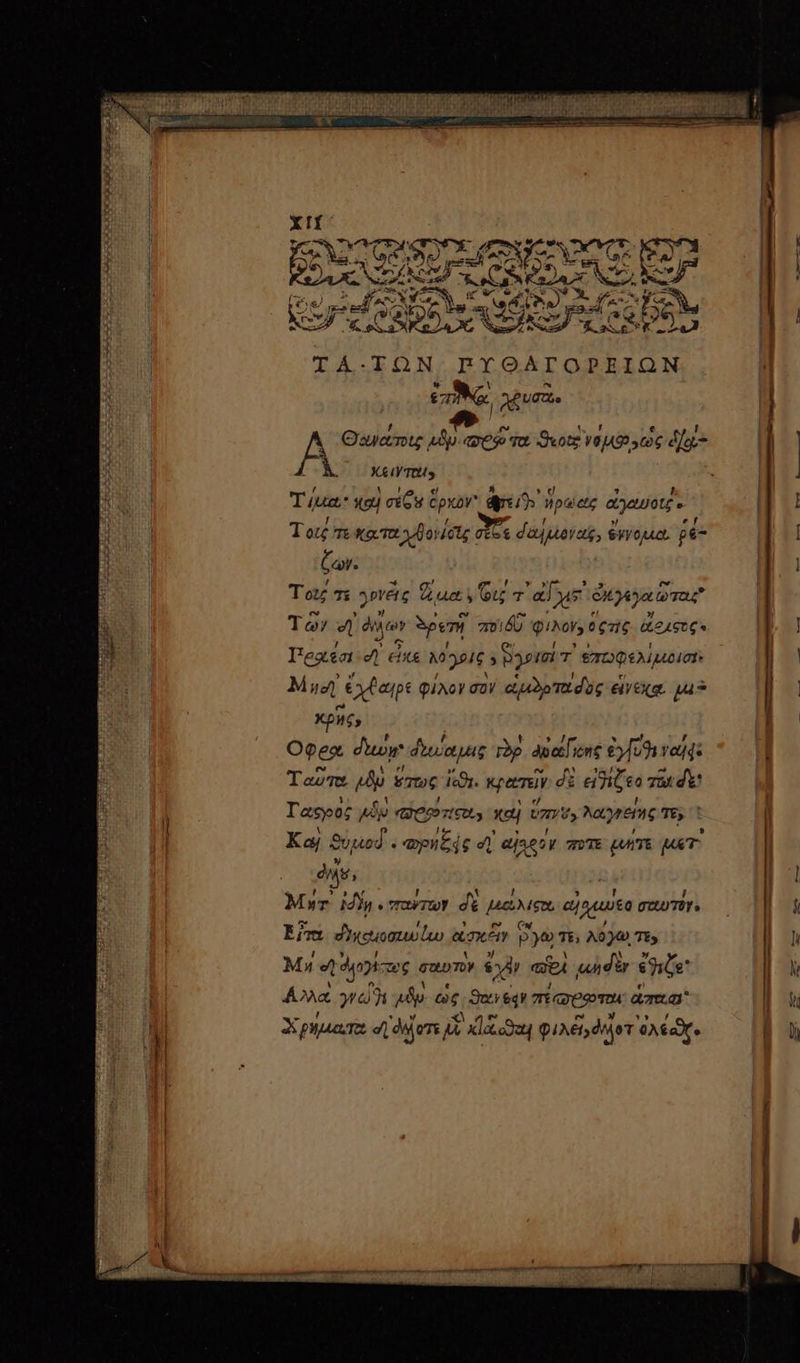 XII
ΤΑ ΤΩΝ ΠΥΘΑΓΟΡΕΙΩΝ
ἔπη τὰ χρυσᾶ.
Ἀθανάτους μὲν πρῶτα θεοὺς νόμῳ, ὡς διά-
κεινται,
Τίμα· καὶ σέβου ὅρκον· ἔπειθ' ἥρωας ἀγαυούς.
Τούς τε καταχθονίους σέβε δαίμονας, ἔννομα ῥέ-
ζων.
Τούς τε γονεῖς τίμα, τούς τ' ἄγχιστ' ἐκγεγαῶτας·
Τῶν δ' ἄλλων ἀρετῇ ποιοῦ φίλον, ὅστις ἄριστος.
Πραέσι δ' εἶκε λόγοις, ἔργοισί τ' ἐπωφελίμοισι.
Μηδ' ἔχθαιρε φίλον σὸν ἁμαρτάδος εἵνεκα μι-
κρῆς,
Ὄφρα δύνῃ· δύναμις γὰρ ἀνάγκης ἐγγύθι ναίει.
Ταῦτα μὲν οὕτως ἴσθι. κρατεῖν δὲ εἰθίζεο τῶνδε·
Γαστρὸς μὲν πρώτιστα, καὶ ὕπνου, λαγνείης τε,
Καὶ θυμοῦ. πρήξῃς δ' αἰσχρόν ποτε μήτε μετ'
ἄλλου,
Μήτ' ἰδίῃ. πάντων δὲ μάλιστα αἰσχύνεο σαυτόν.
Εἶτα δικαιοσύνην ἀσκεῖν ἔργῳ τε, λόγῳ τε,
Μὴ δ' ἀλογίστως σαυτὸν ἔχειν περὶ μηδὲν ἔθιζε·
Ἀλλὰ γνῶθι μὲν ὡς θανέειν πέπρωται ἅπασι·
Χρήματα δ' ἄλλοτε μὲν κτᾶσθαι φιλεῖ, ἄλλοτ' ὀλέσθαι.